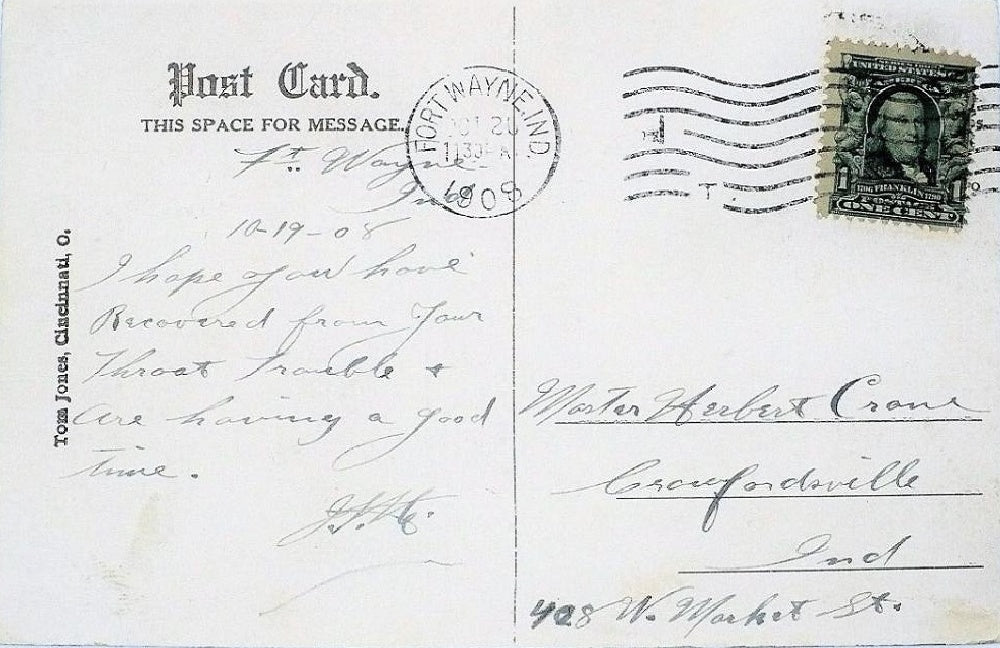 Post Card.
THIS SPACE FOR MESSAGE.
Ft. Wayne
Ind
10-19-08
I hope you have
Recovered from Your
Throat Trouble +
Are having a good
time.
Tom Jones, Cincinnati, O.
FORT WAYNE, IND.
1130
1908
1 FRANKLIN 1
ONE CENT
Master Herbert Crane
Crawfordsville
Ind
428 W. Market St.